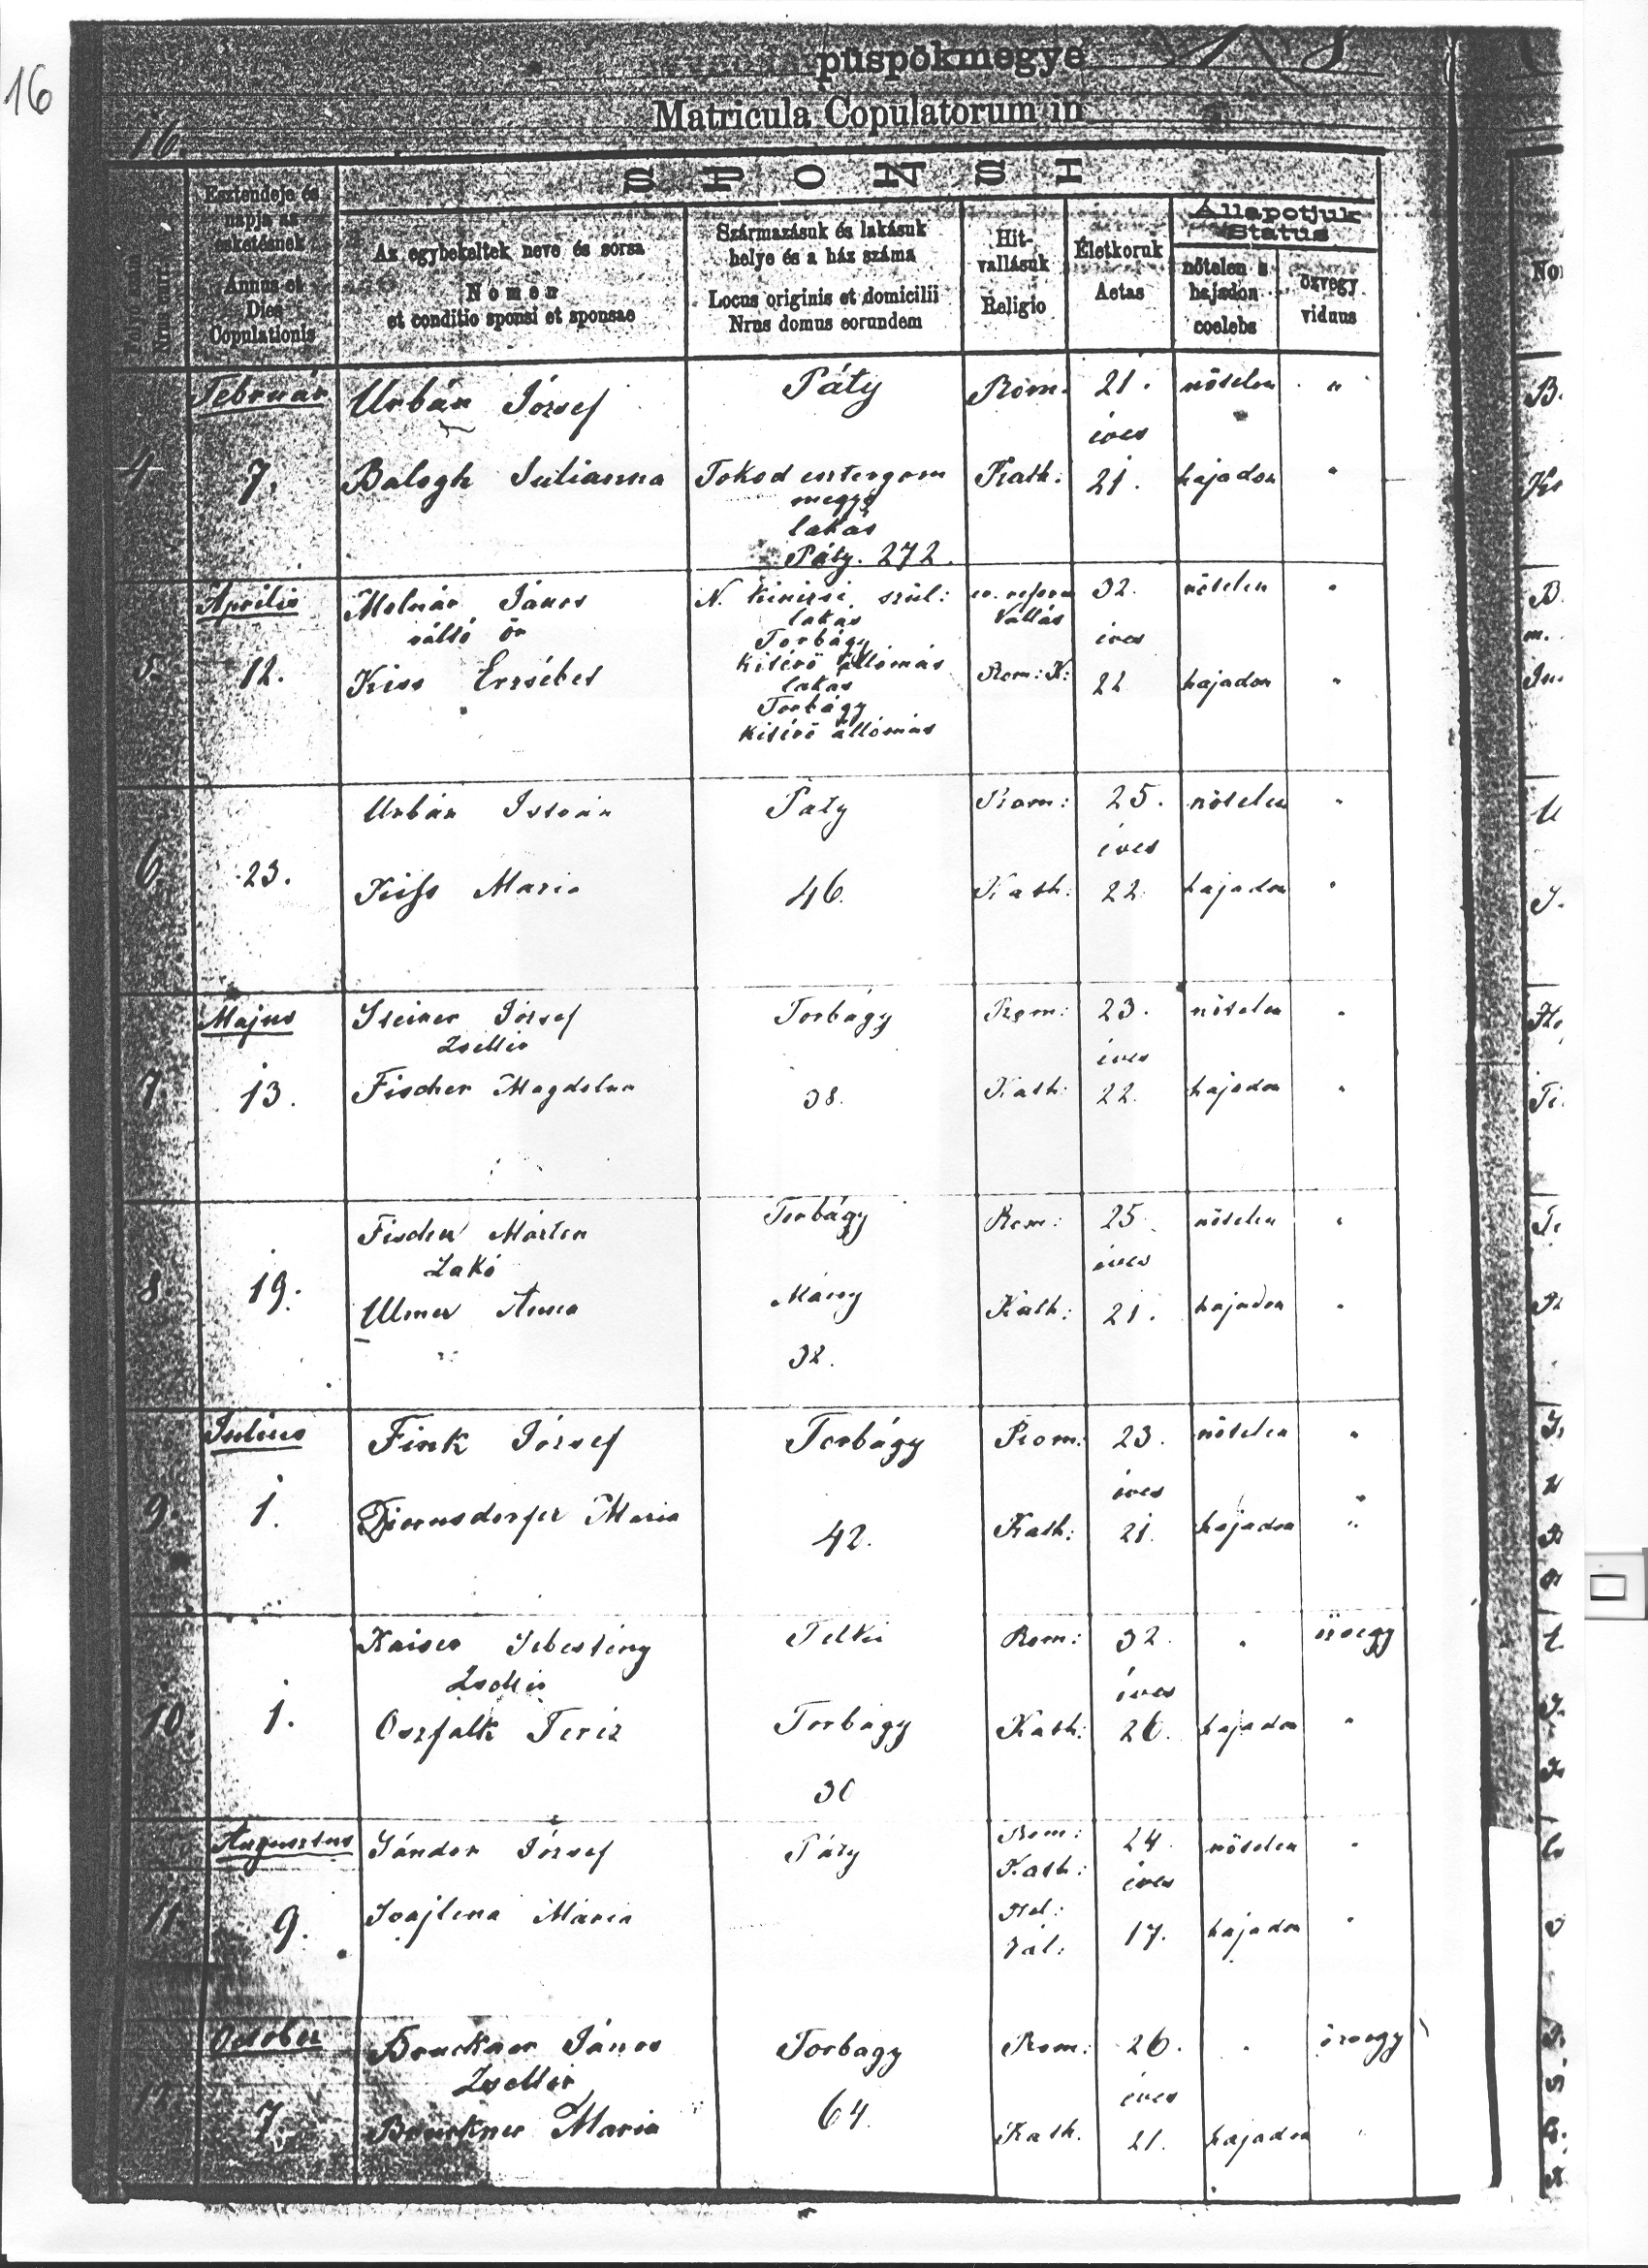 16
püspökmegye
Matricula Copulatorum in
16.
SPONSI
Esztendeje és
napja az
esketésnek
Annus et
Dies
Copulationis
Az egybekeltek neve és sorsa
Nomen
et conditio sponsi et sponsae
Származásuk és lakásuk
helye és a ház száma
Locus originis et domicilii
Nrus domus eorundem
Hit-
vallásuk
Religio
Életkoruk
Aetas
Állapotjuk
Status
nőtelen s
hajadon
coelebs
özvegy
viduus
Február Urbán József Páty Rom: 21. nőtelen "
éves
4 7. Balogh Julianna Tokod esztergom Kath: 21. hajadon "
megye
lakás
Páty. 272.
Április Molnár János N. kinizsi szül: ev. reform 32. nőtelen "
váltó őr lakás vallás éves
Torbágy
kitérő állomás
5. 12. Kiss Erzsébet lakás Rom: K: 22 hajadon "
Torbágy
kitérő állomás
Urbán István Páty Rom: 25. nőtelen "
éves
6. 23. Kiss Maria 46. Kath: 22. hajadon "
Majus Steiner József Torbágy Rom: 23. nőtelen "
Zsellér éves
7 13. Fischer Magdolna 38. Kath: 22. hajadon "
Fischer Márton Torbágy Rom: 25. nőtelen "
Lakó éves
8 19. Ulmer Anna Mány Kath: 21. hajadon "
32.
Julius Fink József Torbágy Rom: 23. nőtelen "
éves
9. 1. Maria 42. Kath: 21. hajadon "
Kaiser Sebestény Telki Rom: 32. " özvegy
Zsellér éves
10 1. Oszfalk Teréz Torbágy Kath: 26. hajadon "
30
Augusztus Sándor József Páty Rom: 24. nőtelen "
Kath: éves
11 9. Svajlena Mária Hel: 17. hajadon "
Vál:
October Bruckner János Torbagy Rom: 26. " özvegy
Zsellér éves
12. 7. Bruckner Maria 64. Kath. 21. hajadon "